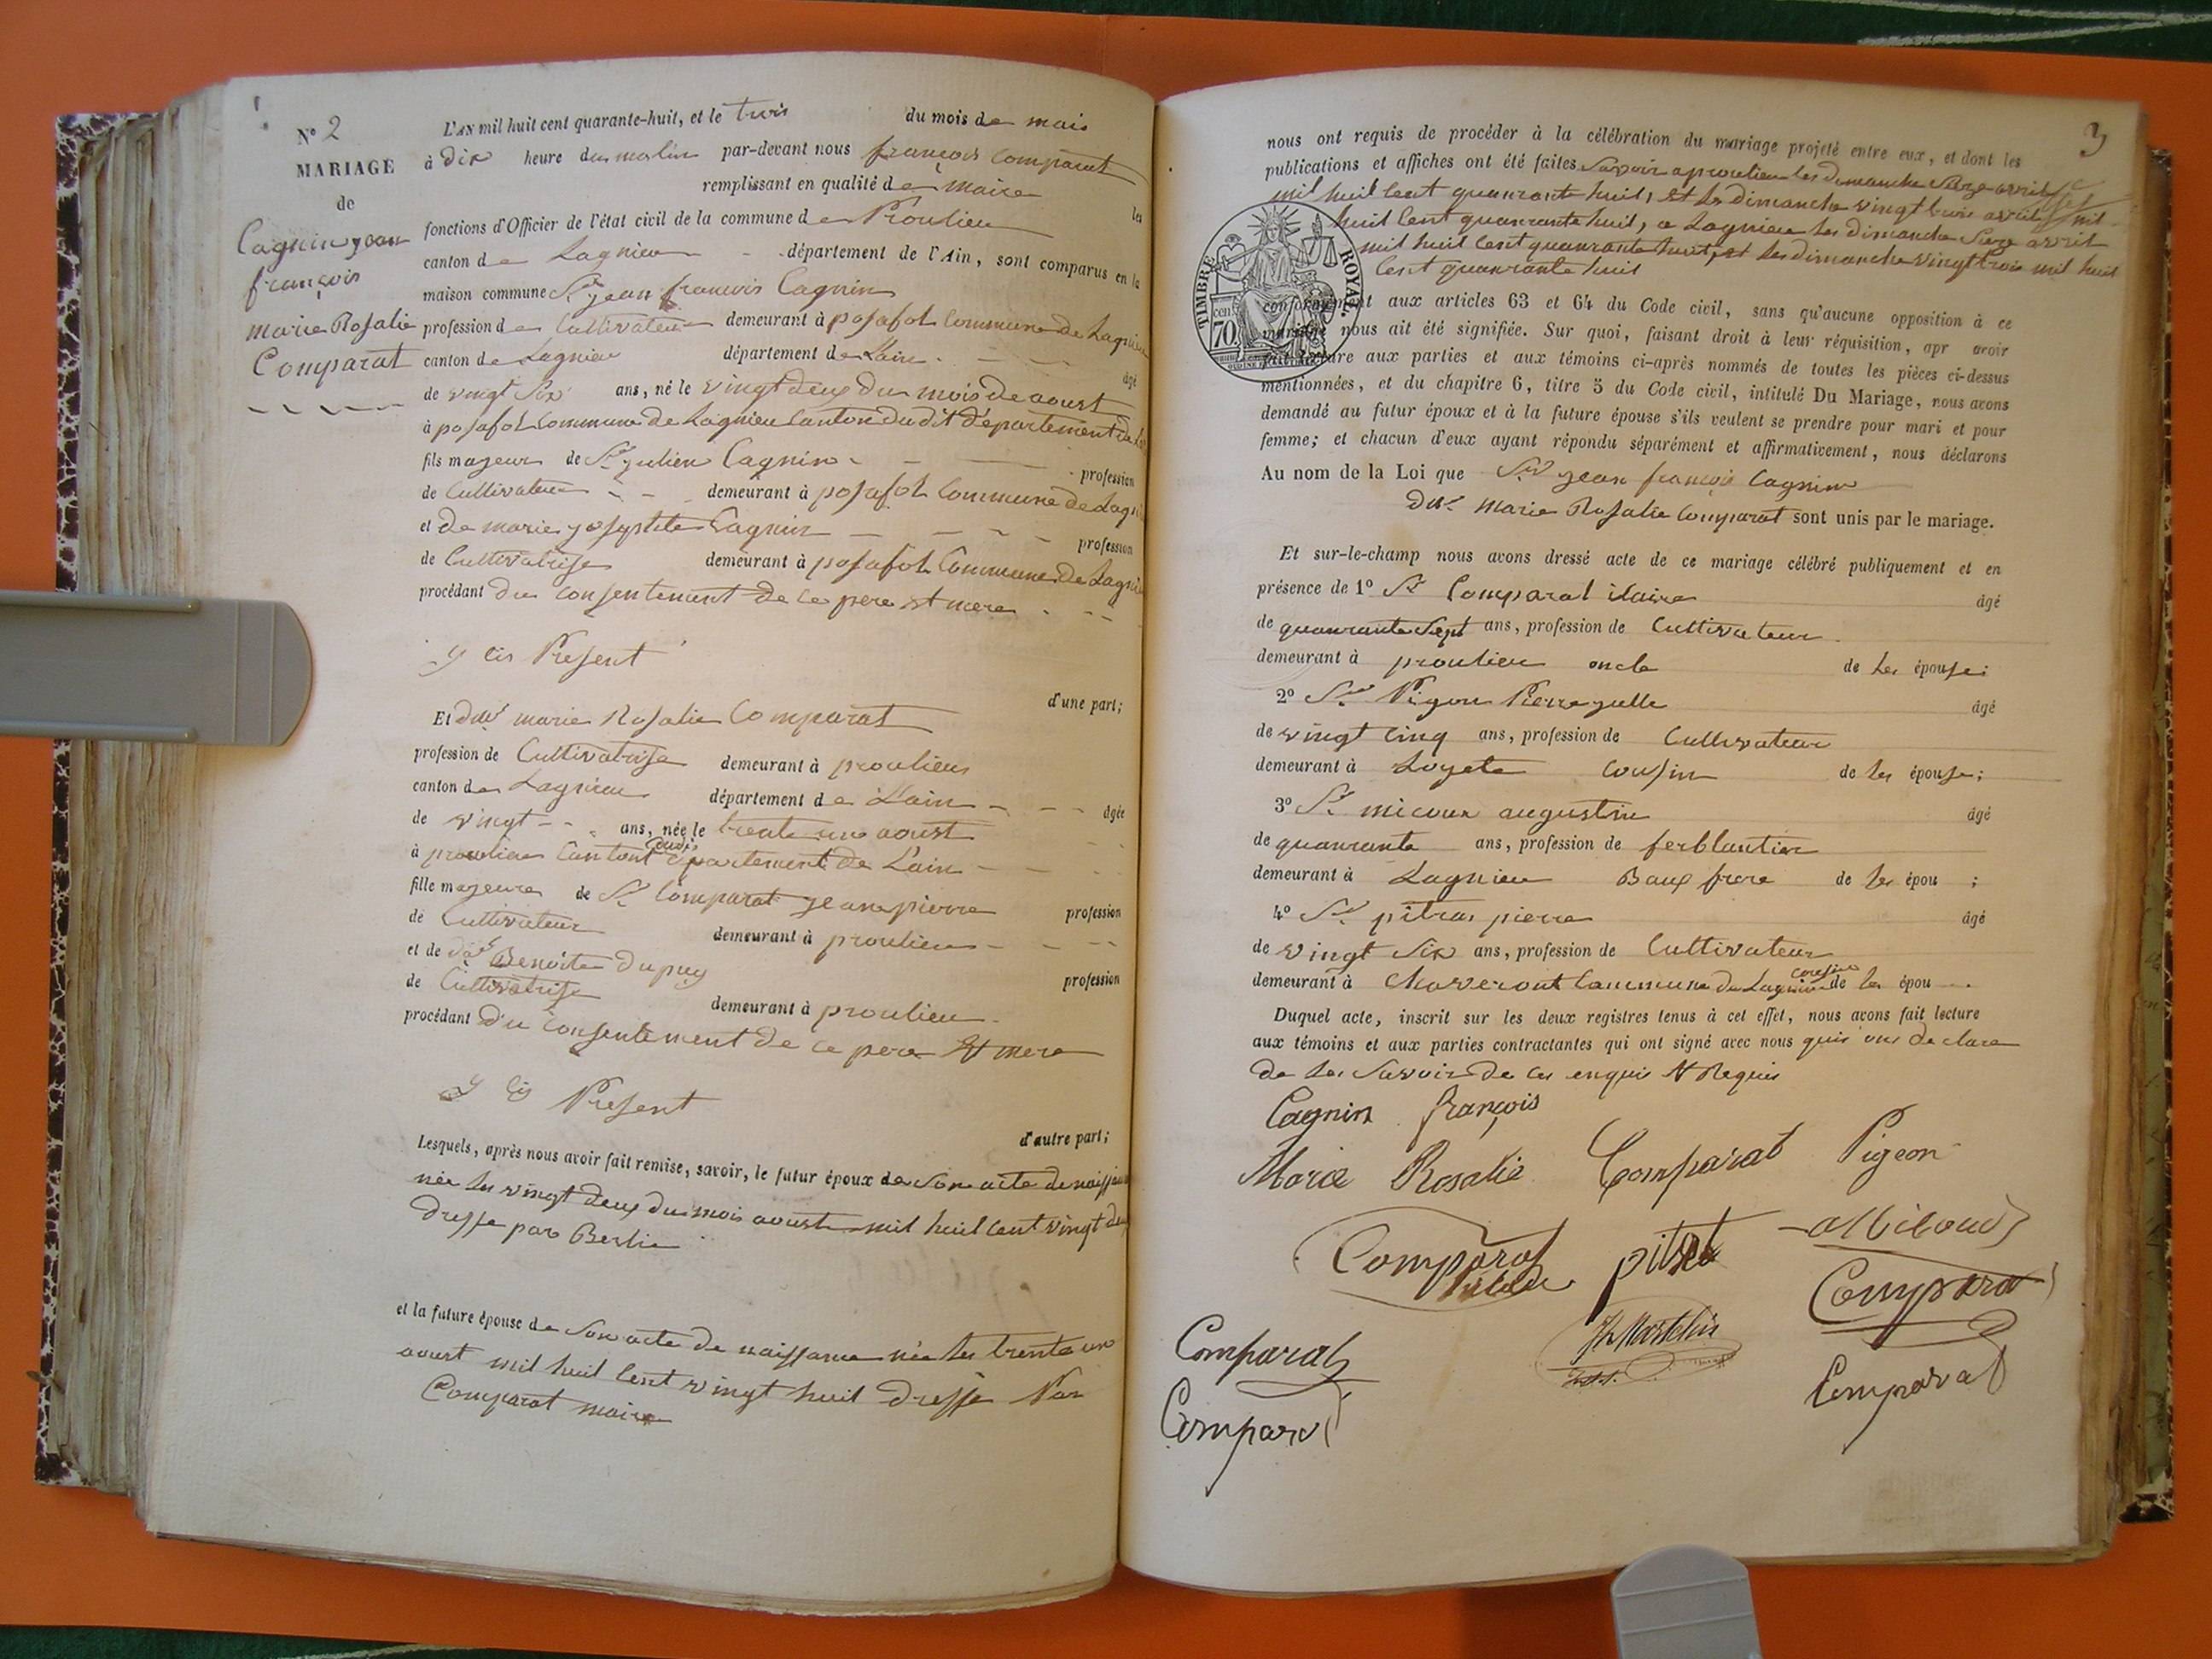 N° 2
MARIAGE
de
Cagnin jean
françois
marie Rosalie
Comparat
L'AN mil huit cent quarante-huit, et le trois du mois de mais
à dix heure du matin par-devant nous françois comparat
remplissant en qualité de maire les
fonctions d'Officier de l'état civil de la commune de Proulieu
canton de Lagnieu département de l'Ain, sont comparus en la
maison commune Sr jean francois Cagnin
profession de Cultivateur demeurant à posafol Commune de Lagnieu
canton de Lagnieu département de Lain âgé
de vingt Six ans, né le vingt deux du mois de aoust
à posafol Commune de Lagnieu Canton du dit département de
fils majeur de Sr julien Cagnin profession
de Cultivateur demeurant à posafol Commune de Lagn
et de marie josephte Cagnin profession
de Cultivatrise demeurant à posafol Commune de Lagni
procédant du consentement de ce pere et mere
y cis Present
d'une part;
Et dlle marie Rosalie Comparat
profession de Cultivatrise demeurant à proulieu
canton de Lagnieu département de Lain âgée
de vingt ans, née le trente une aoust
à proulieu Canton dudis département de Lain
fille majeure de Sr Comparat jean pierre profession
de Cultivateur demeurant à proulieu
et de Benoite Dupuy profession
de Cultivatrise demeurant à proulieu
procédant du consentement de ce pere et mere
y cis Present
d'autre part;
Lesquels, après nous avoir fait remise, savoir, le futur époux de Son acte de naissan
née le vingt deux du mois aoust mil huit cent vingt deu
dresse par Berlie
et la future épouse de Son acte de naissance née le trente un
aoust mil huit Cent vingt huit dresse Par
Comparat maire
3
nous ont requis de procéder à la célébration du mariage projeté entre eux, et dont les
publications et affiches ont été faites Savoir a proulieu les dimanche Seize avril
mil huit Cent quanrante huit, et le dimanche vingt trois avril mil
huit Cent quanrante huit, a Lagnieu les dimanche Seize avril
mil huit Cent quanrante huit, et les dimanche vingt trois mil huit
Cent quanrante huit
TIMBRE ROYAL
cen. 70.
conformément aux articles 63 et 64 du Code civil, sans qu'aucune opposition à ce
mariage nous ait été signifiée. Sur quoi, faisant droit à leur réquisition, apr avoir
fait lecture aux parties et aux témoins ci-après nommés de toutes les pièces ci-dessus
mentionnées, et du chapitre 6, titre 5 du Code civil, intitulé Du Mariage, nous avons
demandé au futur époux et à la future épouse s'ils veulent se prendre pour mari et pour
femme; et chacun d'eux ayant répondu séparément et affirmativement, nous déclarons
Au nom de la Loi que Sr jean françois Cagnin
Dlle marie Rosalie Comparat sont unis par le mariage.
Et sur-le-champ nous avons dressé acte de ce mariage célébré publiquement et en
présence de 1° Sr Comparat ilaire âgé
de quanrante Sept ans, profession de Cultivateur
demeurant à proulieu oncle de les épouse;
2° Sr Pigon Pierre âgé
de vingt Cinq ans, profession de Cultivateur
demeurant à Loyete Cousin de les épouse;
3° Sr micoux augustin âgé
de quanrante ans, profession de ferblantier
demeurant à Lagnieu Baux frere de les épou ;
4° Sr pitras pierre âgé
de vingt Six ans, profession de Cultivateur
demeurant à Charveront Commune de Lagnieu cousin de les épou
Duquel acte, inscrit sur les deux registres tenus à cet effet, nous avons fait lecture
aux témoins et aux parties contractantes qui ont signé avec nous declare
de les Savoir de ces enquis et Requis
Cagnin françois
Marie Rosalie Comparat Pigeon
Comparat pitrat
Comparat
Comparat
Comparat
Comparat